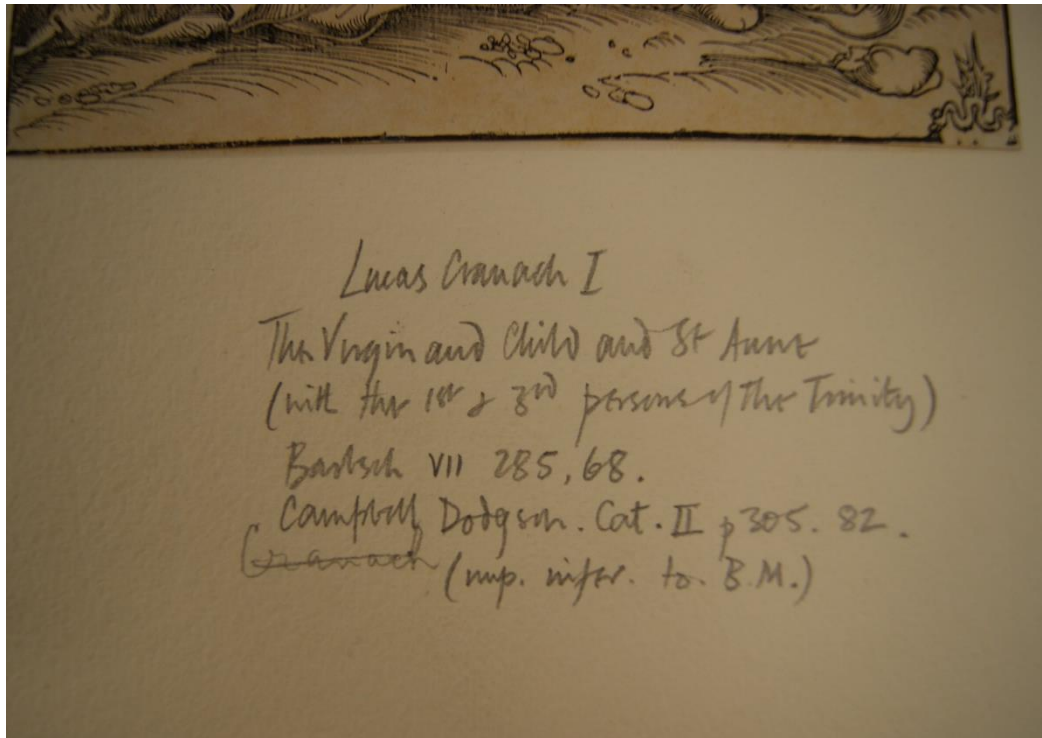 Lucas Cranach I
The Virgin and Child and St Anne
(with the 1st & 3rd persons of The Trinity)
Bartsch VII 285, 68.
Campbell Dodgson. Cat. II p305. 82.
Cranach (imp. infer. to B.M.)